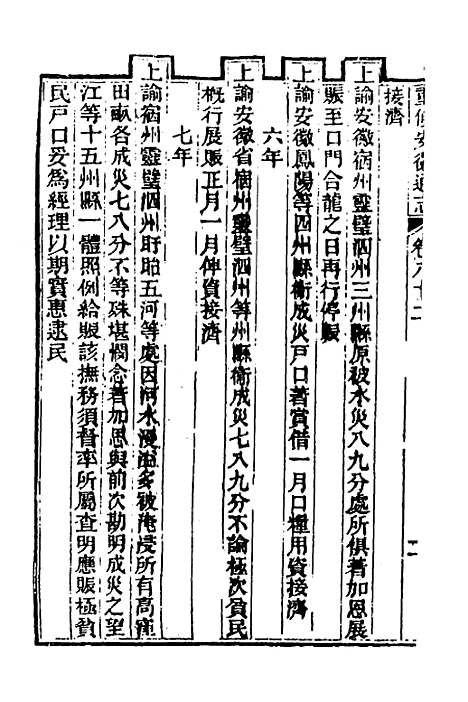 重修安徽通志 卷八十二
接濟
上諭安徽宿州靈璧泗州三州縣原被水災八九分處所俱著加恩展
賑至口門合龍之日再行停賑
上諭安徽鳳陽等四州縣衛成災戶口著賞借一月口糧用資接濟
六年
上諭安徽省宿州靈璧泗州等州縣衛成災七八九分不論極次貧民
概行展賑正月一月俾資接濟
七年
上諭宿州靈璧泗州盱眙五河等處因河水漫溢多被淹浸所有高窪
田畝各成災七八分不等殊堪憫念著加恩與前次勘明成災之望
江等十五州縣一體照例給賑該撫務須督率所屬查明應賑極貧
民戶口妥為經理以期實惠逮民